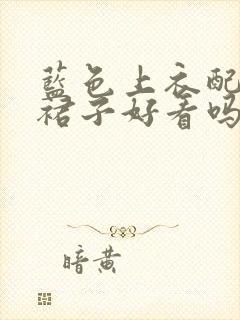 藍色上衣配
裙子好看嗎
暗黄